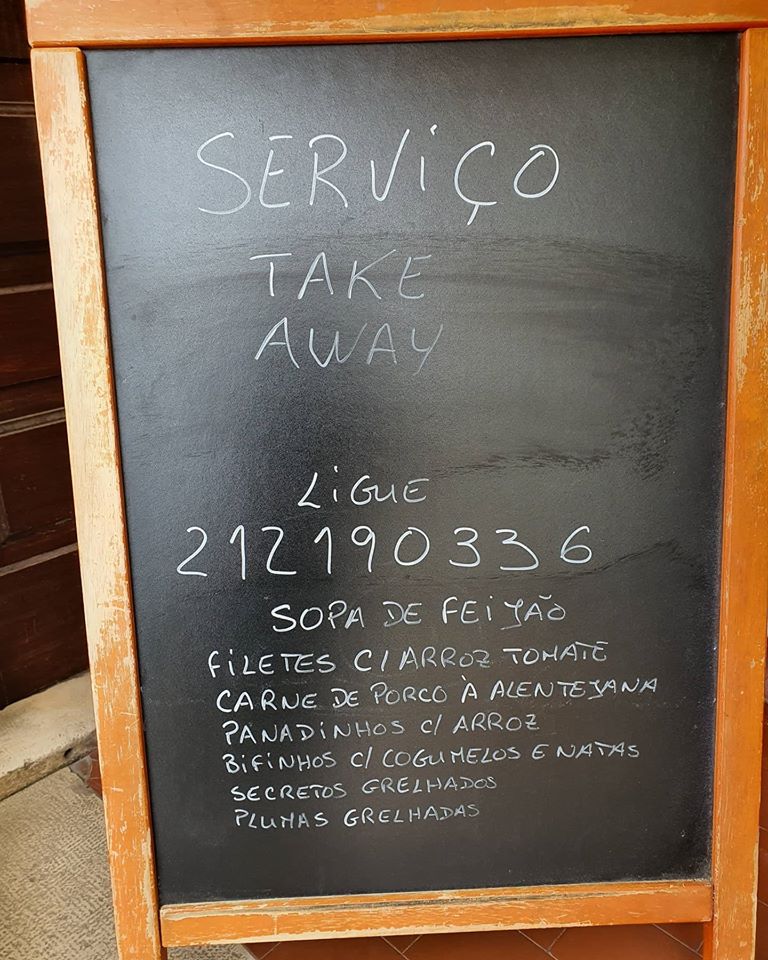 SERViÇO
TAKE
AWAY
LiGUE
212190336
SOPA DE FEIJÃO
FiLETES C/ ARROZ TOMATE
CARNE DE PORCO À ALENTEJANA
PANADiNHOS C/ ARROZ
BiFiNHOS C/ COGUMELOS E NATAS
SECRETOS GRELHADOS
PLUMAS GRELHADAS